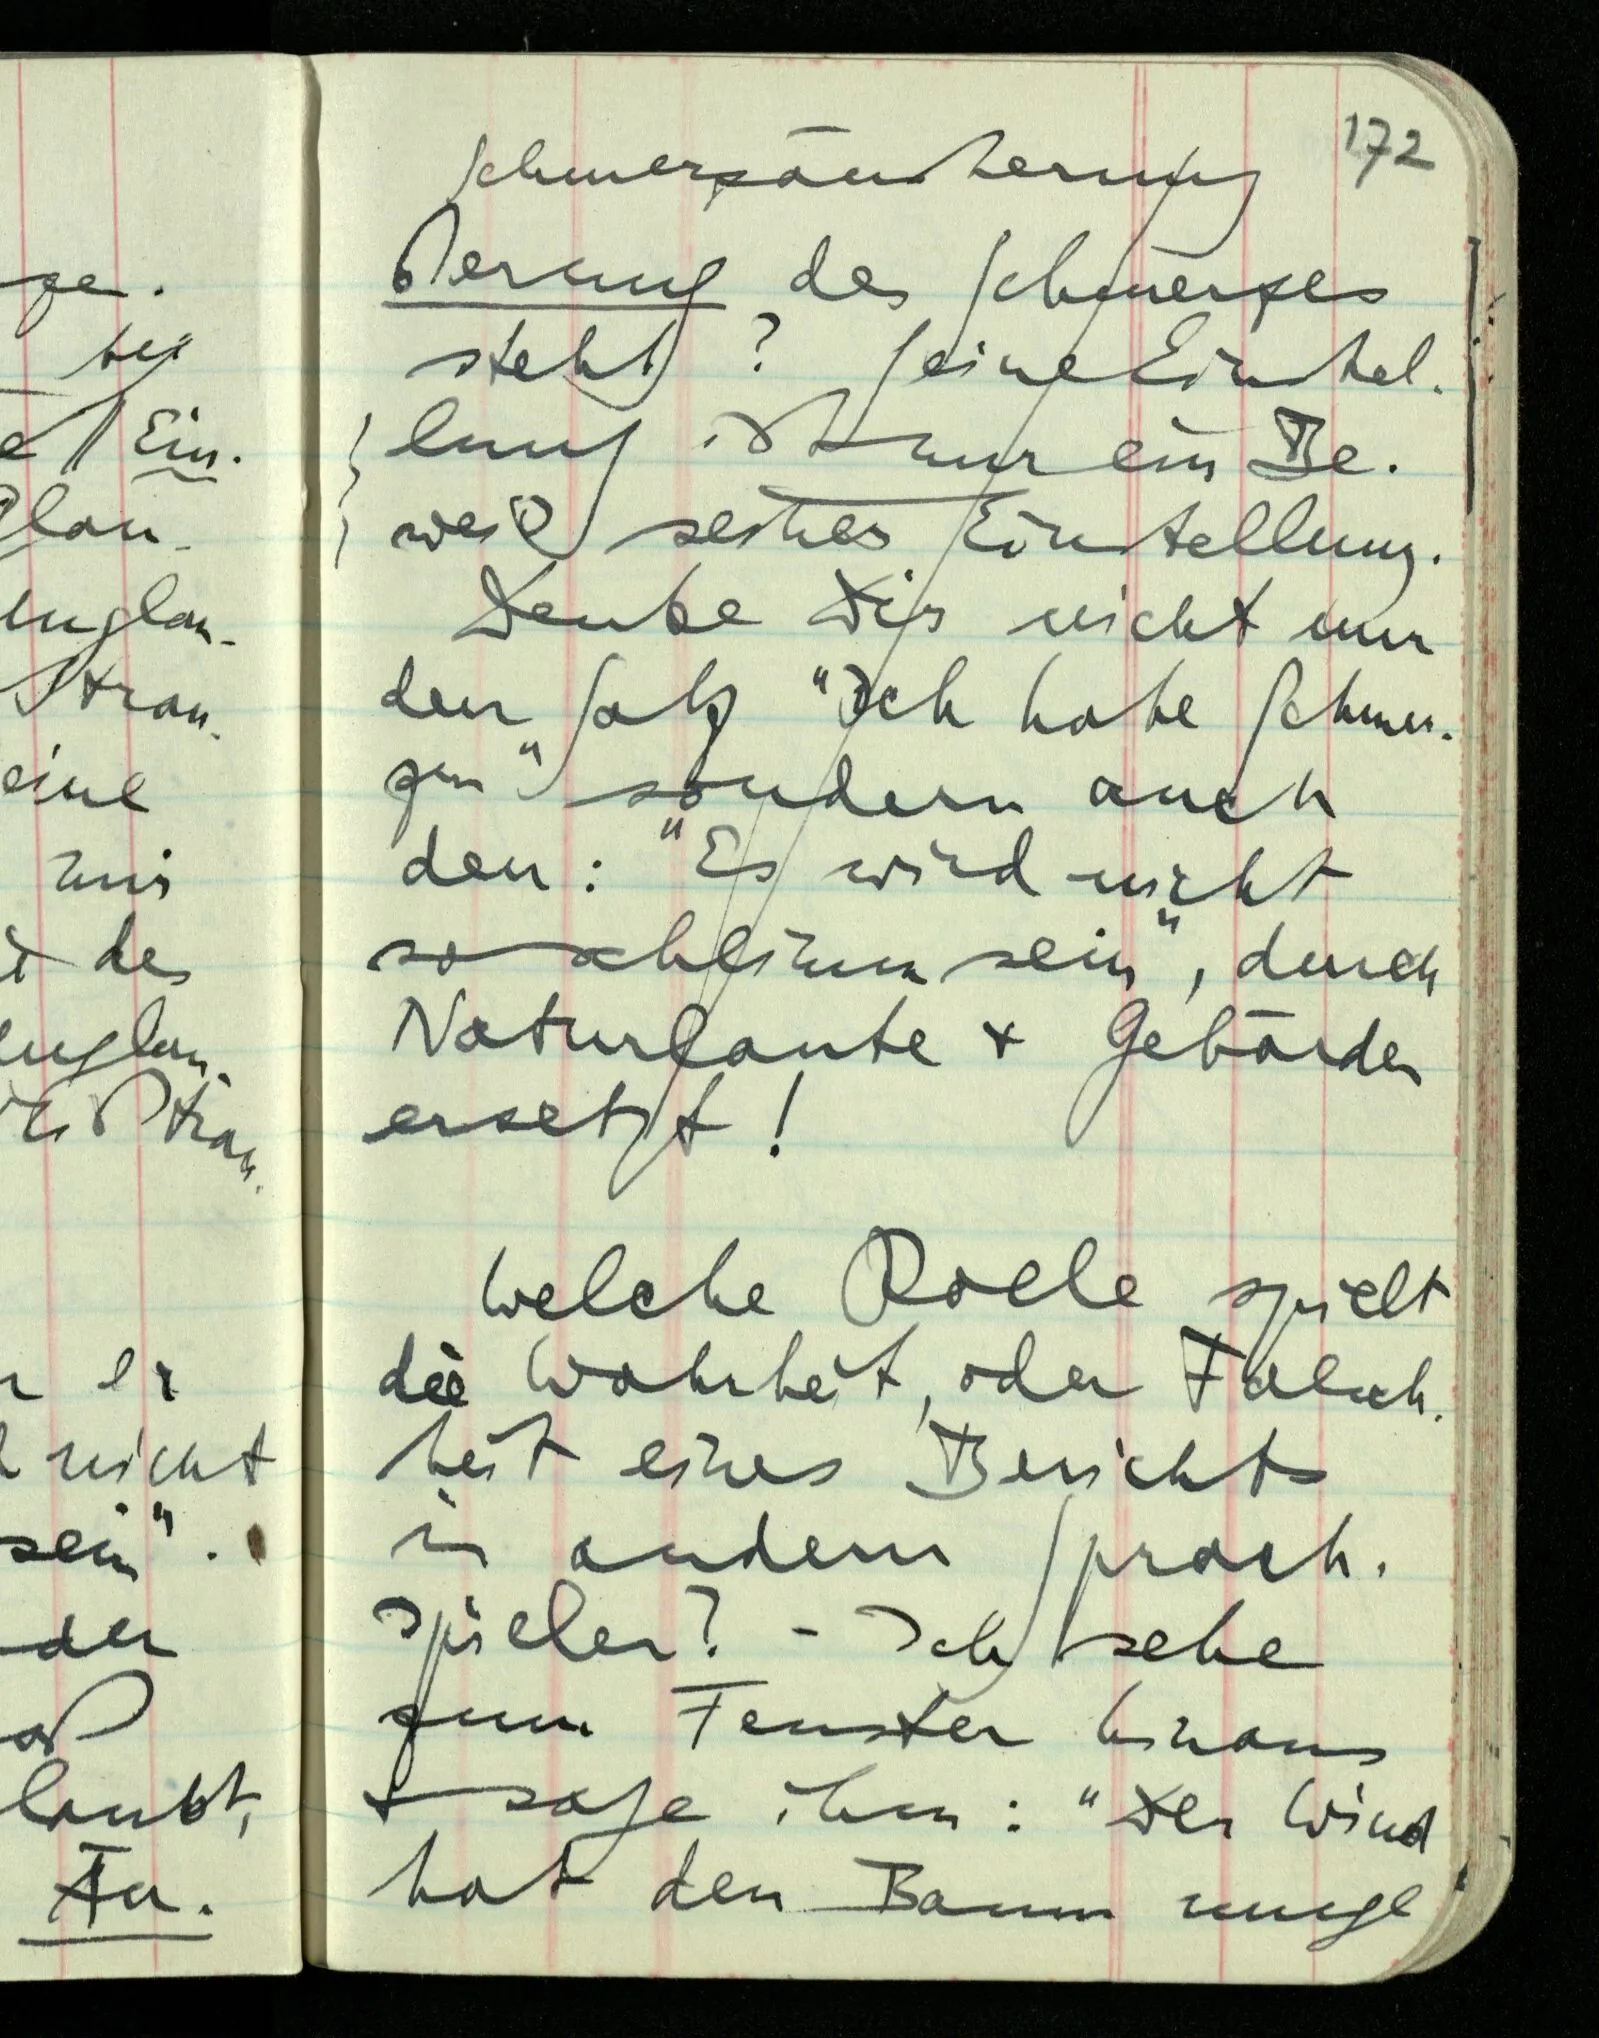 ge.
bei
Ein-
glau-
englau-
Strau-
eine
mir
des
englau-
er
nicht
sein".
der
laubt,
An-
172
Schmerzäußerung
ßerung des Schmerzes
steht? Seine Einstel-
lung ist nur ein Be-
weis seiner Einstellung.
Denke Dir nicht nur
den Satz "Ich habe Schmer-
zen" sondern auch
den: "Es wird nicht
so schlimm sein", durch
Naturlaute + Gebärden
ersetzt!
Welche Rolle spielt
die Wahrheit, oder Falsch-
heit eines Berichts
in andern Sprach-
spielen? – Ich sehe
zum Fenster hinaus
+ sage ihm: "Der Wind
hat den Baum umge